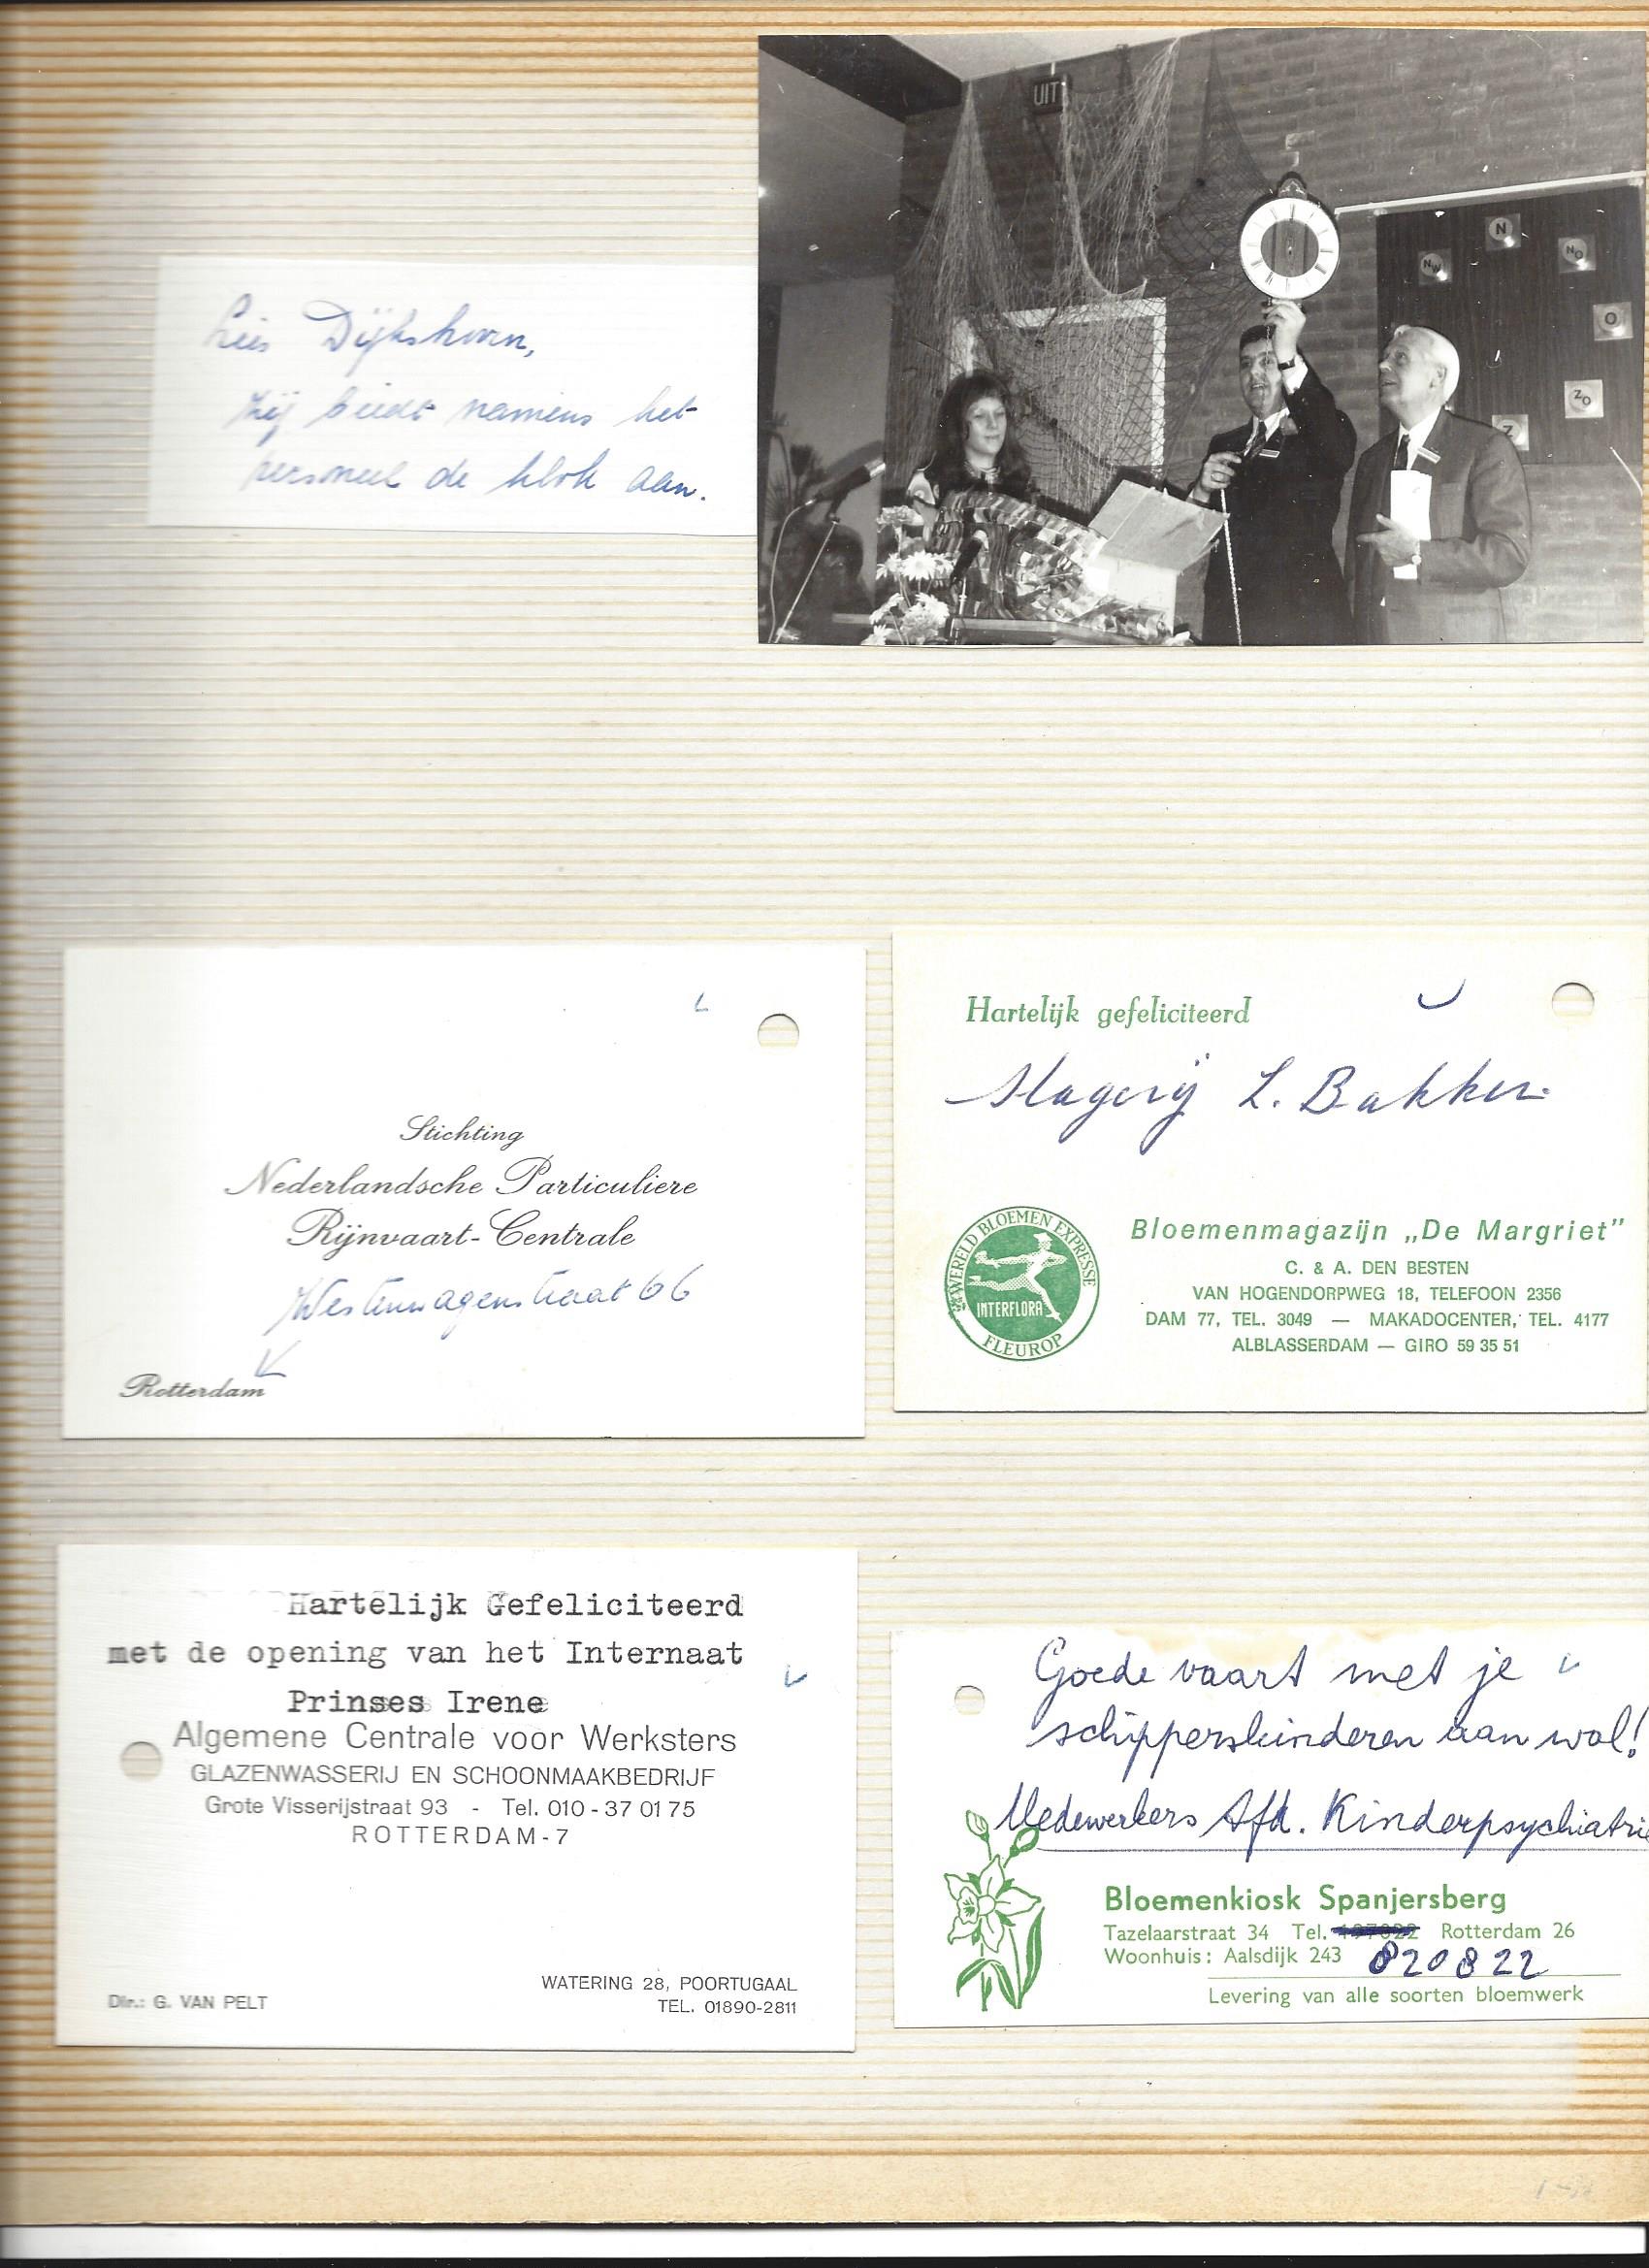 Lies Dijkshoorn,
zij biedt namens het
personeel de klok aan.
UIT
N
NW
NO
O
ZO
Z
Stichting
Nederlandsche Particuliere
Rijnvaart-Centrale
Westewagenstraat 66
Rotterdam
Hartelijk gefeliciteerd
Slagerij L. Bakker
WERELD BLOEMEN EXPRESSE
INTERFLORA
FLEUROP
Bloemenmagazijn „De Margriet”
C. & A. DEN BESTEN
VAN HOGENDORPWEG 18, TELEFOON 2356
DAM 77, TEL. 3049 — MAKADOCENTER, TEL. 4177
ALBLASSERDAM — GIRO 59 35 51
Hartelijk Gefeliciteerd
met de opening van het Internaat
Prinses Irene
Algemene Centrale voor Werksters
GLAZENWASSERIJ EN SCHOONMAAKBEDRIJF
Grote Visserijstraat 93 - Tel. 010 - 37 01 75
ROTTERDAM-7
Dir.: G. VAN PELT
WATERING 28, POORTUGAAL
TEL. 01890-2811
Goede vaart met je
schipperskinderen aan wal!
Medewerkers Afd. Kinderpsychiatrie
Bloemenkiosk Spanjersberg
Tazelaarstraat 34 Tel. Rotterdam 26
Woonhuis: Aalsdijk 243 820822
Levering van alle soorten bloemwerk